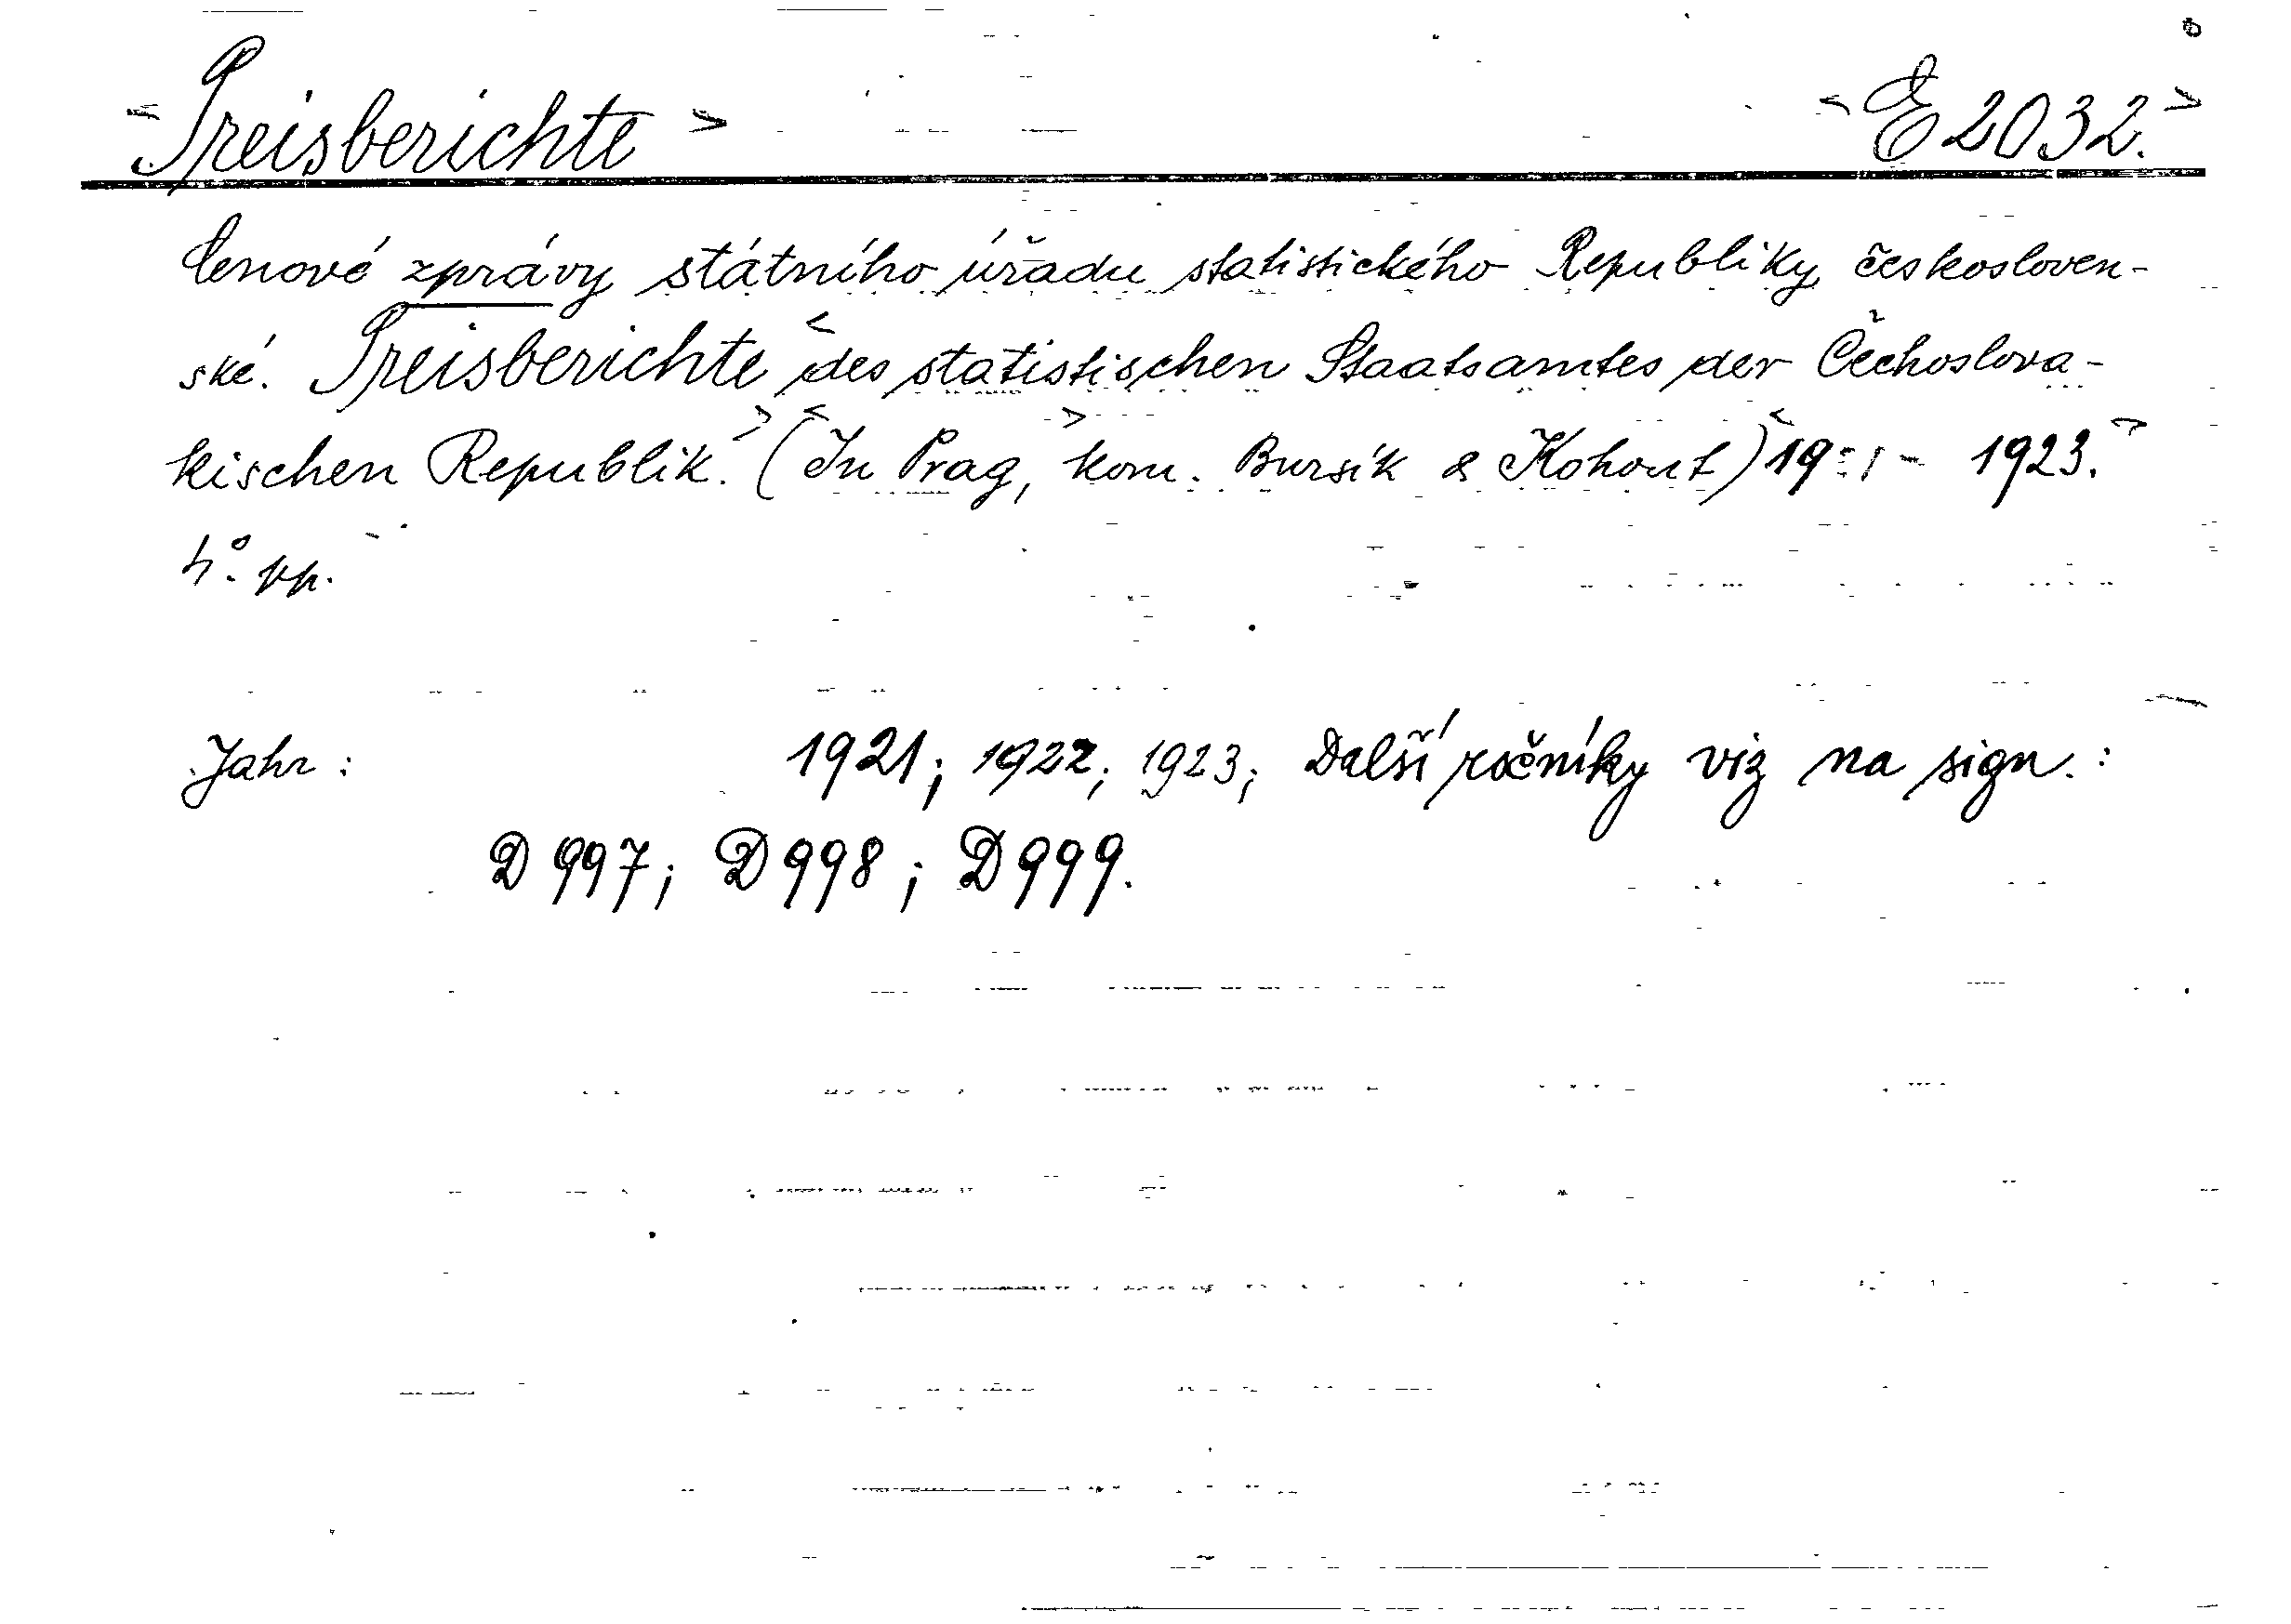 <Preisberichte> <E 2032.>
Cenové zprávy státního úřadu statistického Republiky českosloven-
ské. Preisberichte <des statistischen Staatsamtes der Čechoslova-
kischen Republik.> (<In Prag,> kom. Bursík & Kohout) <19 - 1923.>
4°. vp.
Jahr: 1921; 1922; 1923; Další ročníky viz na sign.:
D 997; D 998; D 999.